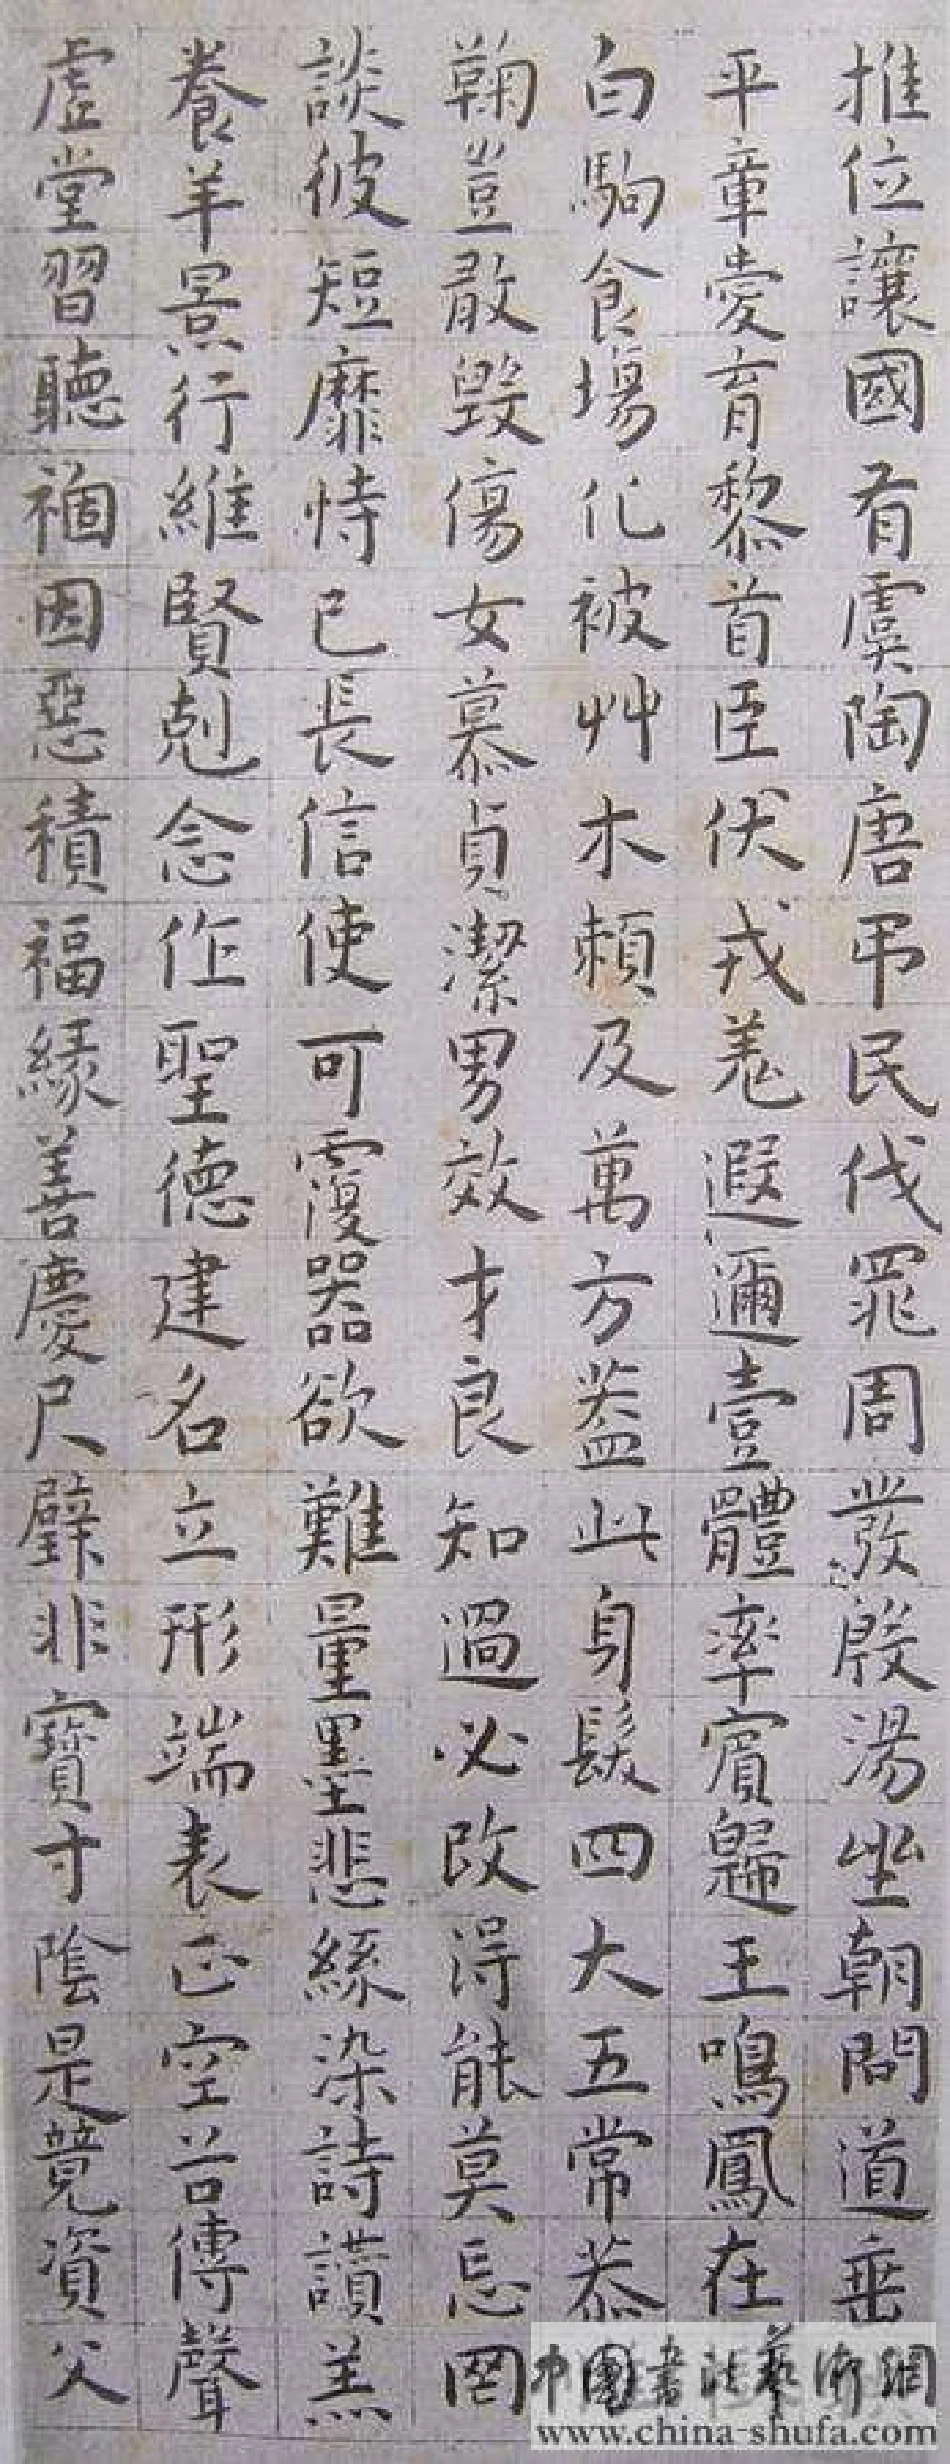 推位讓國有虞陶唐弔民伐罪周發殷湯坐朝問道垂
平章愛育黎首臣伏戎羌遐邇壹體率賓歸王鳴鳳在
白駒食場化被艸木賴及萬方蓋此身髮四大五常恭
鞠豈敢毀傷女慕貞潔男效才良知過必改得能莫忘罔
談彼短靡恃己長信使可覆器欲難量墨悲絲染詩讚羔
養羊景行維賢剋念作聖德建名立形端表正空谷傳聲
虛堂習聽禍因惡積福緣善慶尺璧非寶寸陰是競資父
中國書法藝術網
www.china-shufa.com